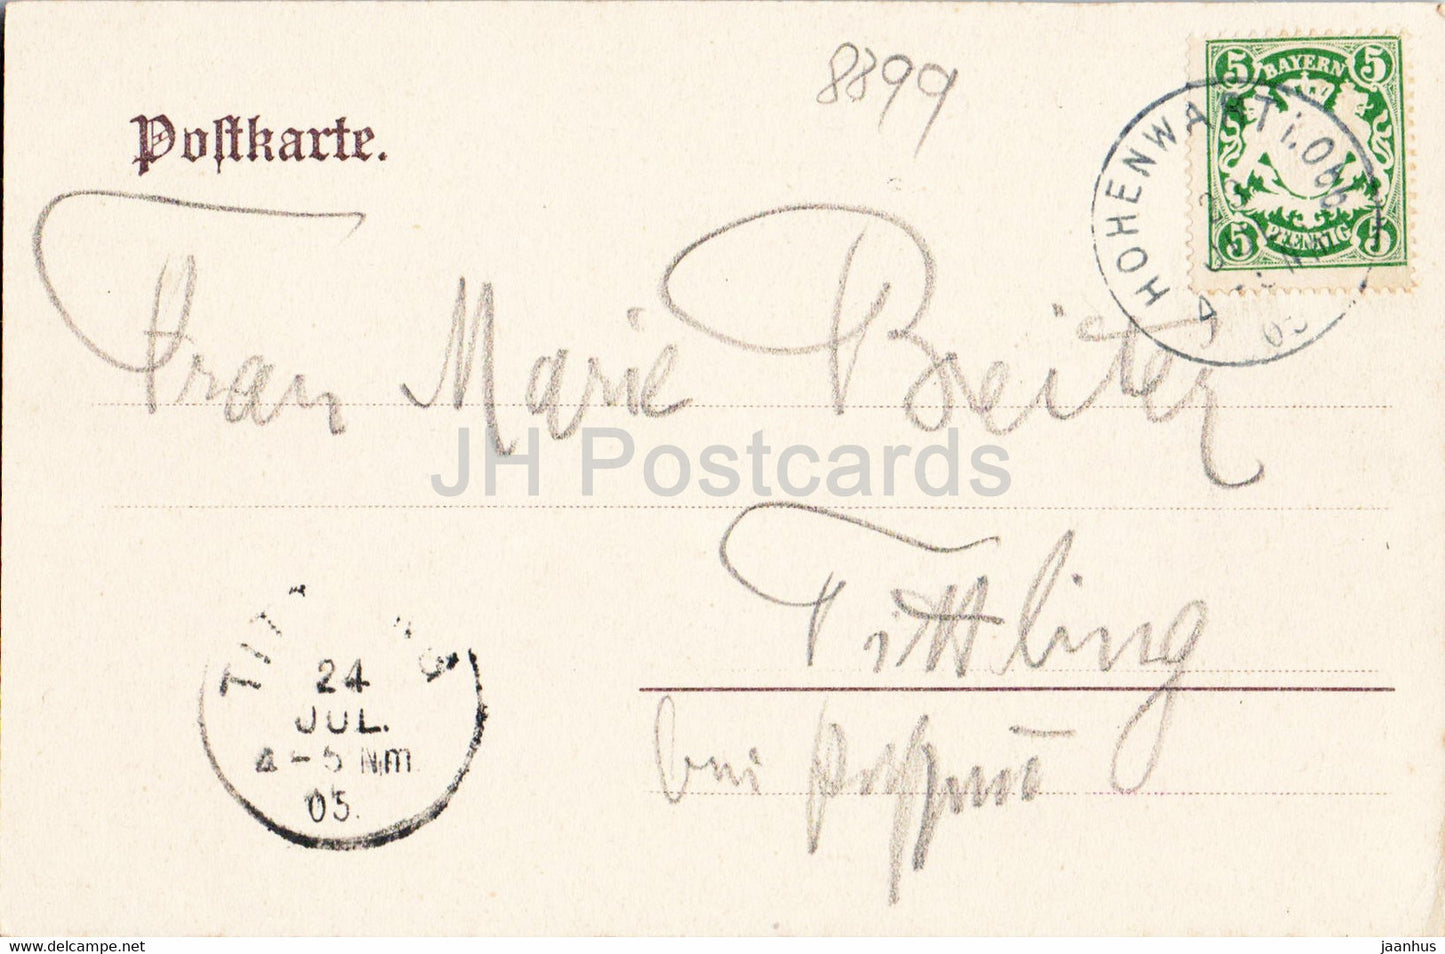 8899
Postkarte.
5 BAYERN 5
5 PFENNIG 5
HOHENWART i. Obb
23
JUL
05
Frau Marie Breiter
Tittling
bei
TIT NG
24
JUL.
4-5 Nm.
05.
JH Postcards
www.delcampe.net
jaanhus